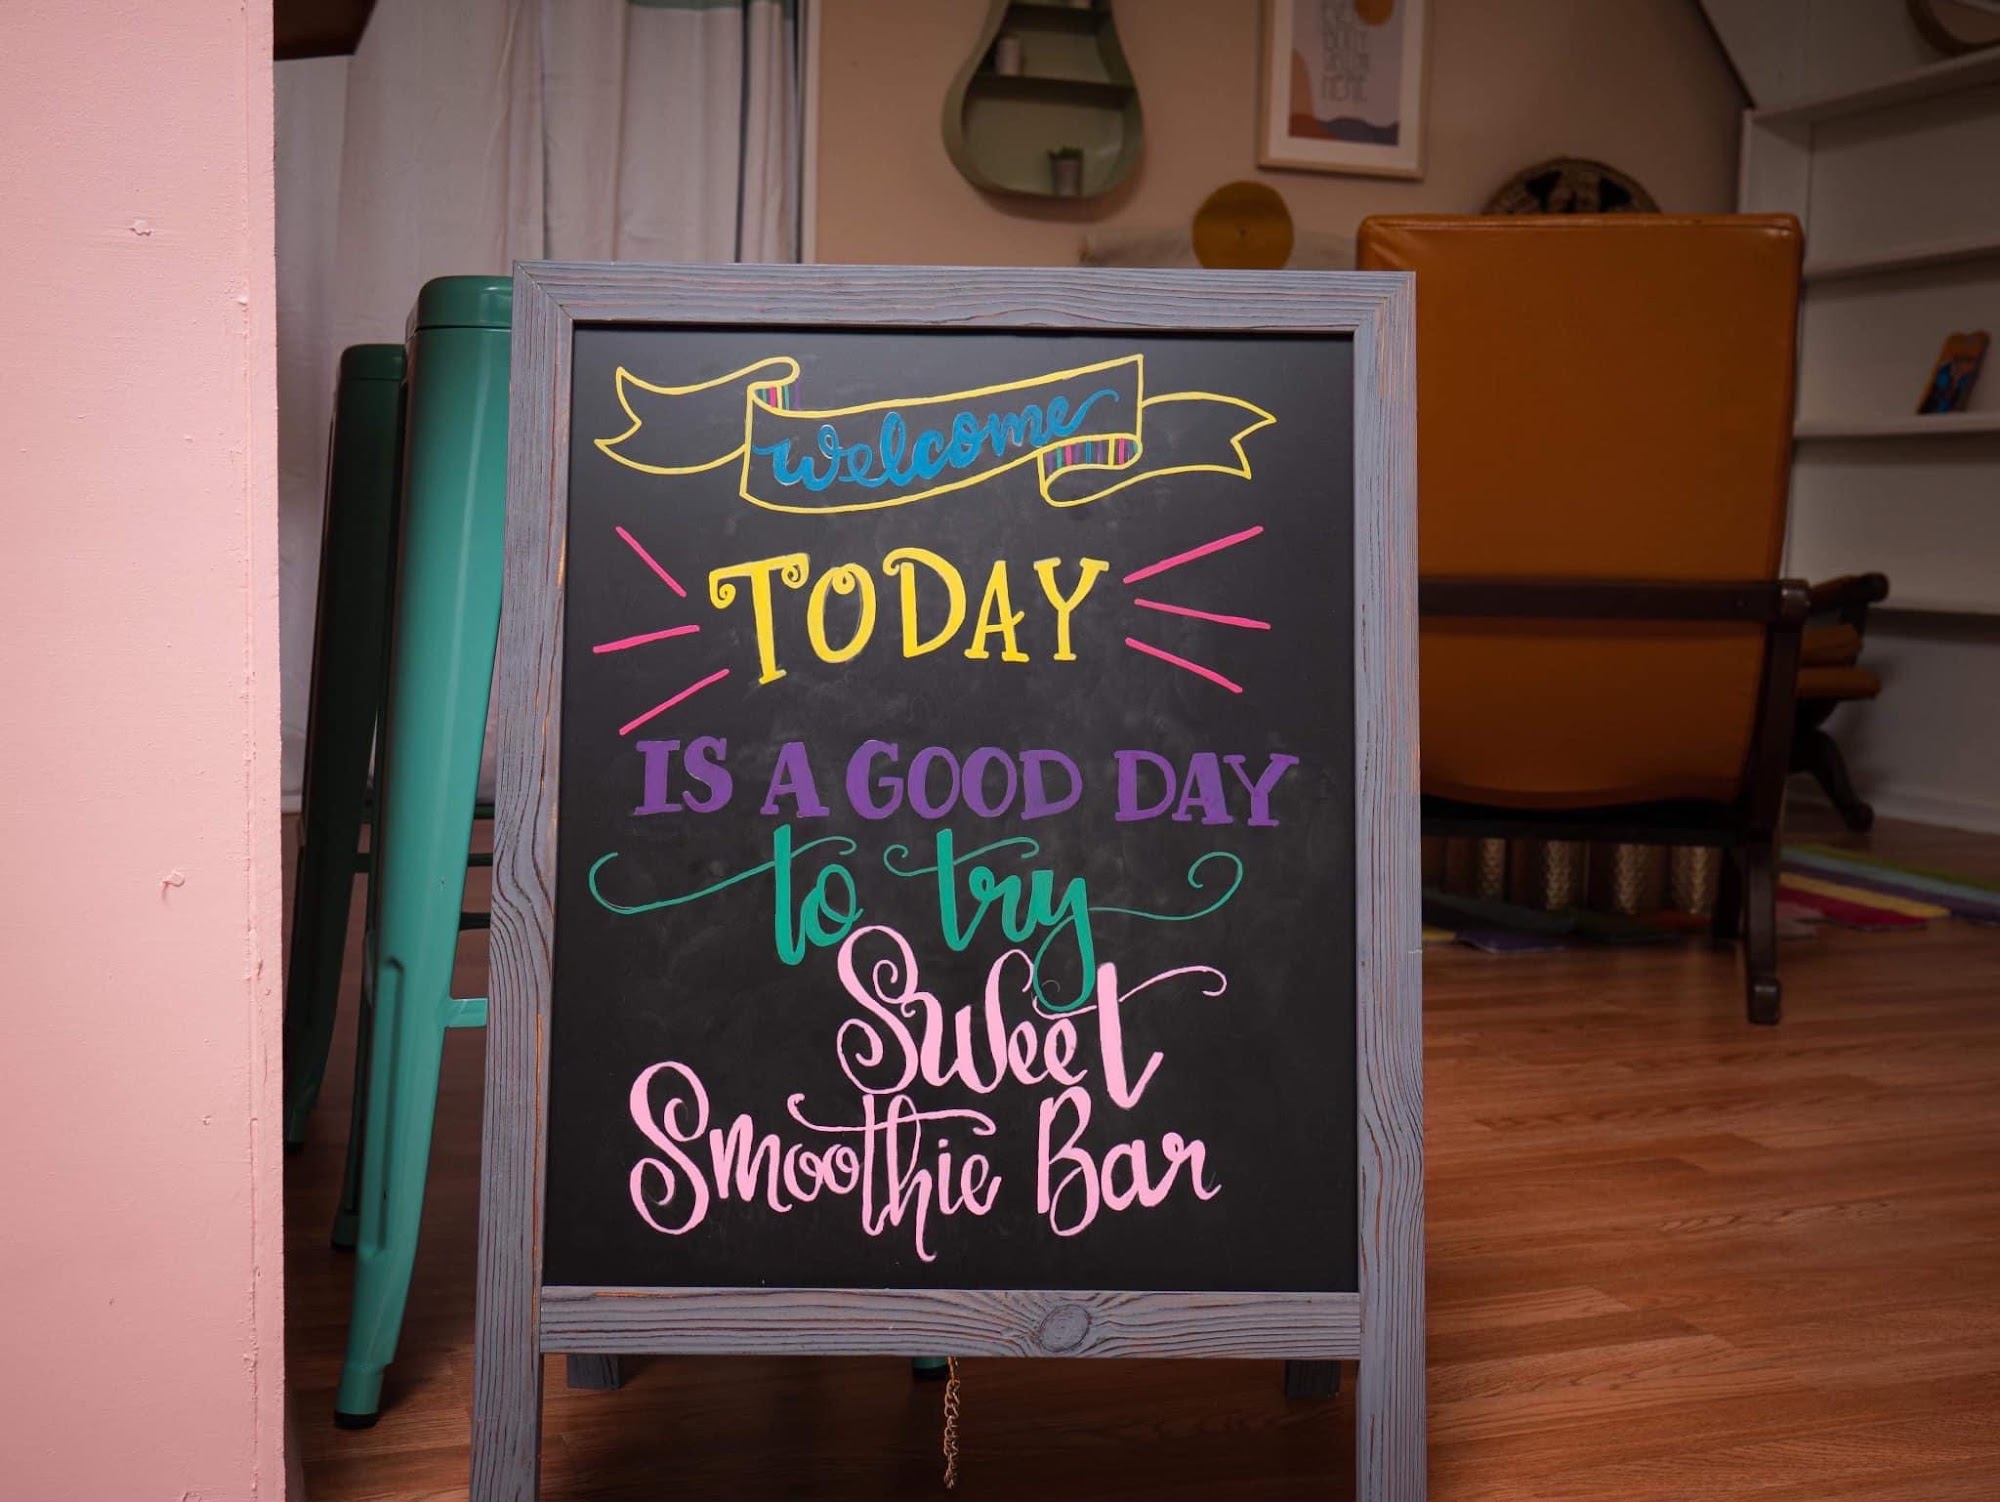 welcome
TODAY
IS A GOOD DAY
to try
Sweet
Smoothie Bar